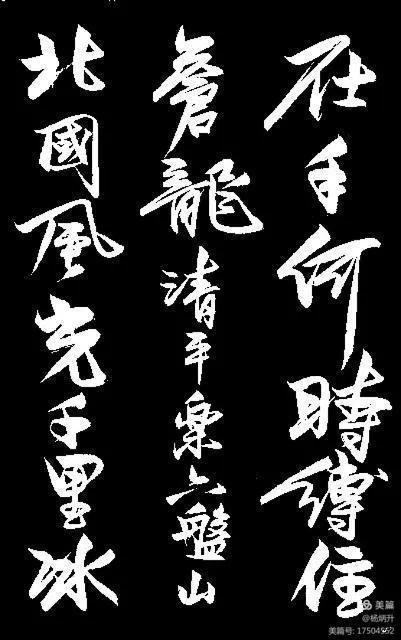 在手何時縛住
蒼龍清平樂六盤山
北國風光千里冰
美篇
@杨炳升
美篇号: 17504552